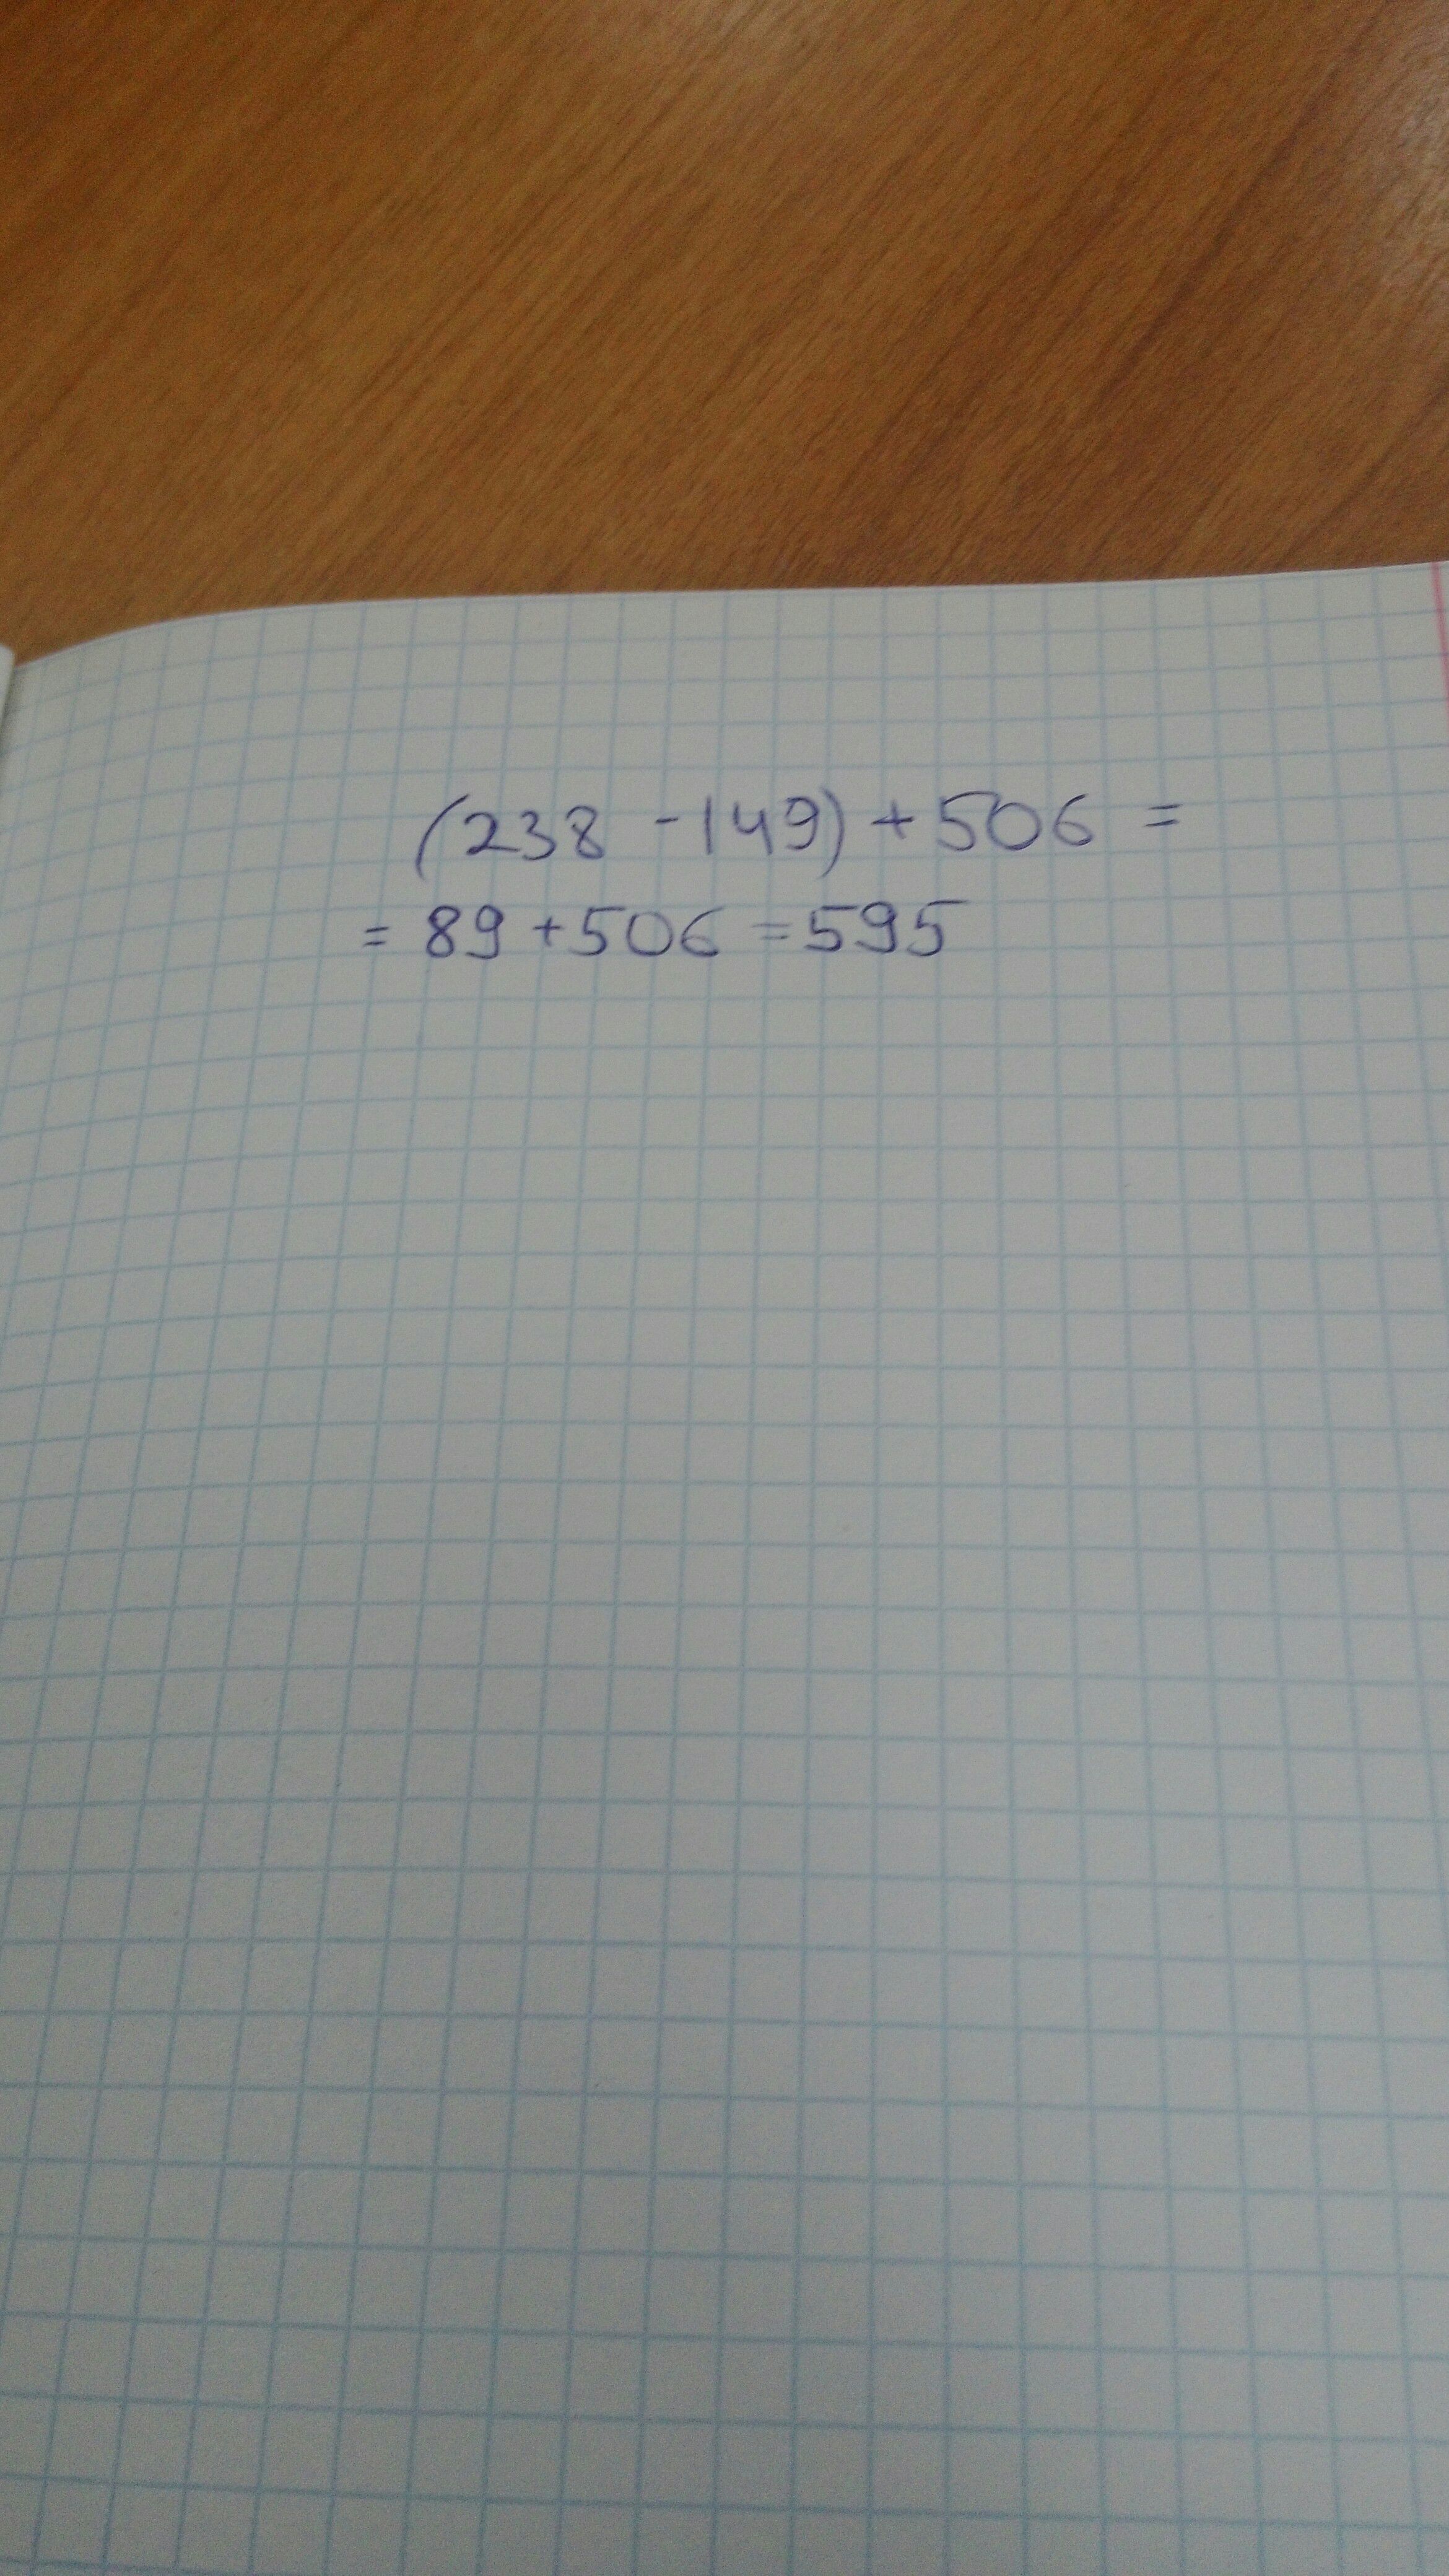 (238 - 149) + 506 =
= 89 + 506 = 595